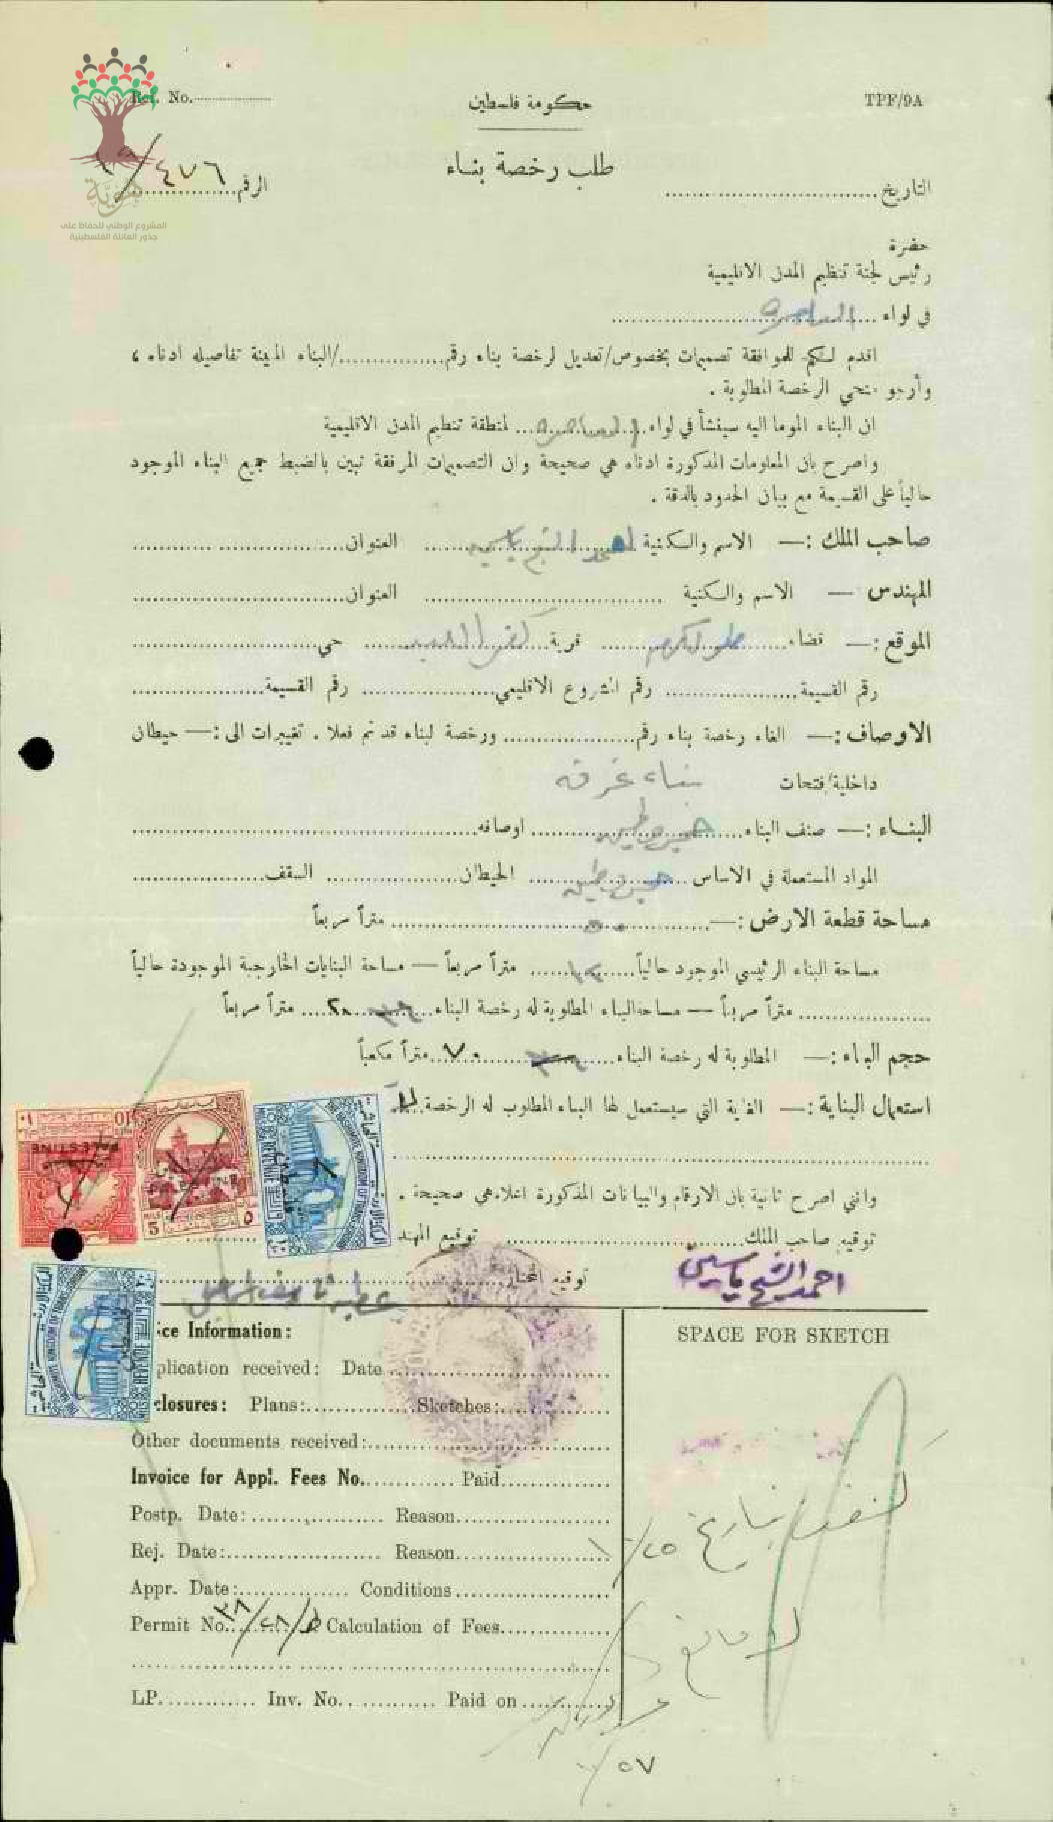 Ref. No.
حكومة فلسطين
TPF/9A
طلب رخصة بناء
الرقم ٤٧٦
التاريخ
هوية
المشروع الوطني للحفاظ على
جذور العائلة الفلسطينية
حضرة
رئيس لجنة تنظيم المدن الاقليمية
في لواء السامرة
اقدم لكم للموافقة تصميمات بخصوص/تعديل لرخصة بناء رقم /البناء المبينة تفاصيله ادناه ،
وأرجو منحي الرخصة المطلوبة .
ان البناء الموما اليه سينشأ في لواء السامرة لمنطقة تنظيم المدن الاقليمية
واصرح بان المعلومات المذكورة ادناه هي صحيحة وان التصميمات المرفقة تبين بالضبط جميع البناء الموجود
حالياً على القسيمة مع بيان الحدود بالدقة .
صاحب الملك :— الاسم والكنية احمد الشيخ ياسين العنوان
المهندس — الاسم والكنية العنوان
الموقع :— قضاء طولكرم قرية كفر اللبد حي
رقم القسيمة رقم المشروع الاقليمي رقم القسيمة
الاوصاف :— الغاء رخصة بناء رقم ورخصة لبناء قد تم فعلا . تغييرات الى :— حيطان
داخلية/فتحات بناء غرفه
البناء :— صنف البناء اوصافه
المواد المستعملة في الاساس الحيطان السقف
مساحة قطعة الارض :— متراً مربعاً
مساحة البناء الرئيسي الموجود حالياً ١٢٠ متراً مربعاً — مساحة البنايات الخارجية الموجودة حالياً
متراً مربعاً — مساحة البناء المطلوبة له رخصة البناء متراً مربعاً
حجم البناء :— المطلوبة له رخصة البناء ٧٠ متراً مكعباً
استعمال البناية :— الغاية التي سيستعمل لها البناء المطلوب له الرخصة
وانني اصرح ثانية بان الارقام والبيانات المذكورة اعلاه هي صحيحة .
توقيع صاحب الملك توقيع المهند
احمد الشيخ ياسين
توقيع المختار
PALESTINE
ice Information:
SPACE FOR SKETCH
plication received: Date
closures: Plans: Sketches:
Other documents received:
Invoice for Appl. Fees No. Paid
Postp. Date: Reason
Rej. Date: Reason
Appr. Date: Conditions
Permit No. Calculation of Fees
LP. Inv. No. Paid on
كشفت بتاريخ ٢٥/
لا مانع